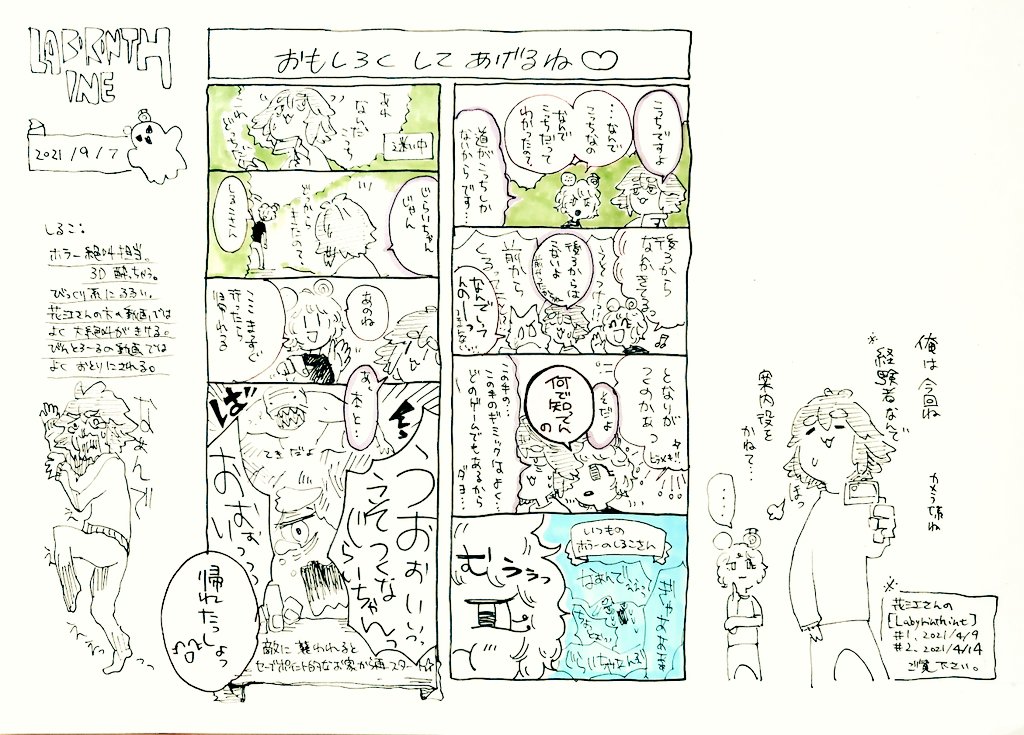 LABORONTH
INE
2021/9/7
おもしろく してあげるね♡
しるこ:
ホラー絶叫担当。
3D酔っちゃう。
びっくり系によわい。
花江さんの方の動画では
よく大絶叫がきける。
びんとろ〜るの動画では
よくおとりにされる。
なぁんで
あれ
なんだ
こっち
迷い中
じらいちゃん
じゃん
どっから
きたので
しるこさん
あのね
ここまっすぐ
行ったら
帰れる
あ、本と…
ば
てきだよ
つおぉいっ
うそつくな
じらいーちゃんっ
おいおおいっ
帰れたっしょっ
敵に襲われると
セーブポイント的なお家から再スタート☆
こっちですよ
…なんで
こっちなの
なんで
こっちだって
わかったので
道がこっちしか
ないからです…
後ろから
なんかきてる
後ろからは
こないよ
前から
くるっ
なんでしって
んのーっ
となりが
つくのかあっ
そだよ
何で知ってんの
このもの…
このもののギミックはよく…
どのゲームでもあるから
ダヨ…
いつもの
ホラーのしるこさん
むうぅぅっ
なあんでぅぅっ
ぎゃぁぁぁぁ
じらいちゃんっ
俺は今回ね
※経験者なんで
カメラ係ね
案内役を
かねて…
ほっ
…
※
花江さんの
[Labyrinthine]
#1. 2021/4/9
#2. 2021/4/14
ご覧下さい。